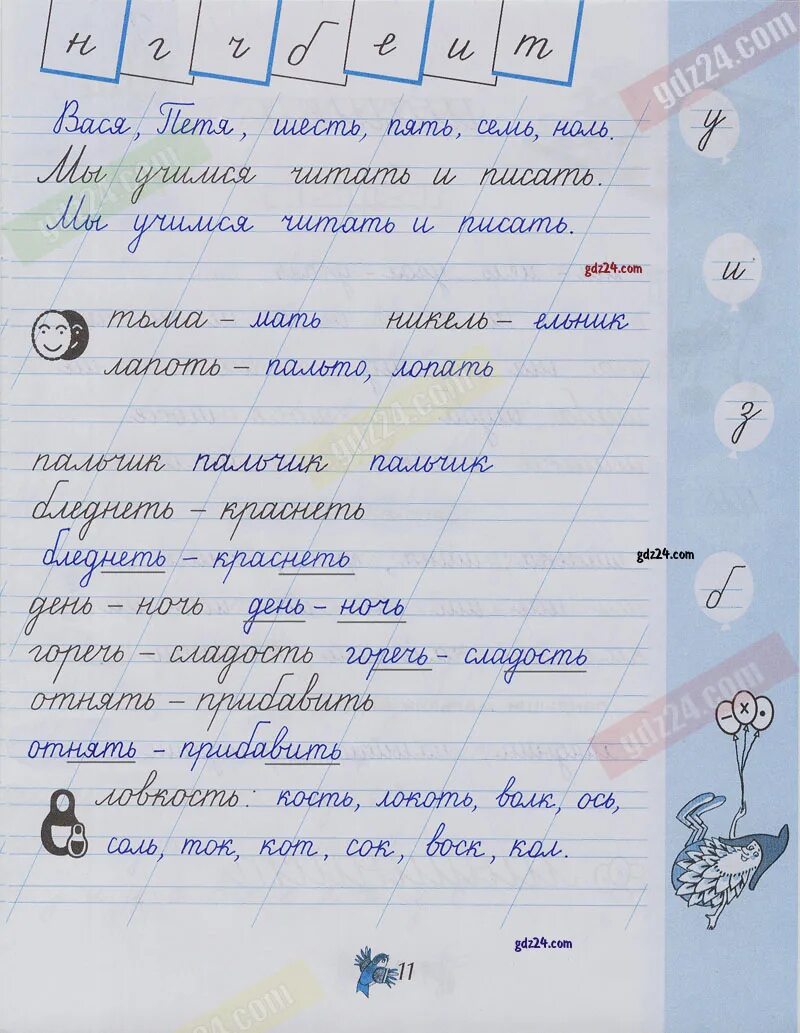 н г ч б е и т
Вася, Петя, шесть, пять, семь, ноль.
у
Мы учимся читать и писать.
Мы учимся читать и писать.
и
gdz24.com
тьма – мать никель – ельник
лапоть – пальто, лопать
з
пальчик пальчик пальчик
бледнеть – краснеть
бледнеть – краснеть
gdz24.com
б
день – ночь день – ночь
горечь – сладость горечь – сладость
отнять – прибавить
отнять – прибавить
– × •
ловкость: кость, локоть, волк, ось,
соль, ток, кот, сок, воск, кол.
gdz24.com
11
gdz24.com
gdz24.com
gdz24.com
gdz24.com
gdz24.com